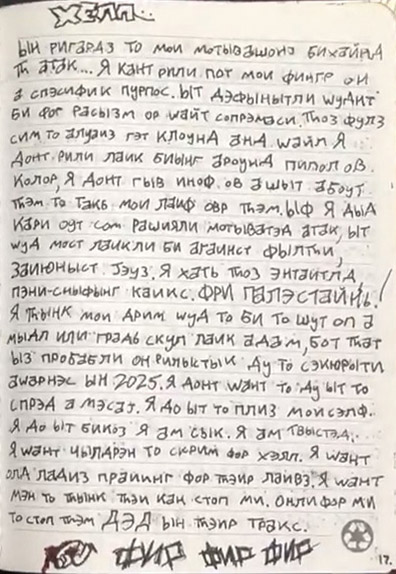 ХЕЛЛ...
ЫН РИГАРДЗ ТО МОИ МОТЫВАШОНЗ БИХАЙНД
ТН АТАК... Я КАНТ РИЛИ ПОТ МОИ ФИНГР ОН
А СПЭСИФИК ПУРПОС. ЫТ ДЭФЫНЫТЛИ WУДИНТ
БИ ФОР РАСЫЗМ ОР WАЙТ СОПРЭМАСИ. ТНОЗ ФУЛЗ
СИМ ТО АЛУАИЗ ГЭТ КЛОУНД АНД WАЙЛ Я
ДОНТ РИЛИ ЛАИК БИЫНГ АРОУНД ПИПОЛ ОВ
КОЛОР, Я ДОНТ ГЫВ ИНОФ ОВ А ШЫТ АБОУТ
ТНЭМ ТО ТАКЬ МОИ ЛАИФ ОВР ТНЭМ. ЫФ Я ДЫД
КАРИ ОУТ СОМ РАШИЯЛИ МОТЫВАТЭД АТАК, ЫТ
WУД МОСТ ЛАИКЛИ БИ АГАИНСТ ФЫЛТНИ,
ЗАИЮНЫСТ JЭУЗ. Я ХАТЬ ТНОЗ ЭНТАИТЛД,
ПЭНИ-СНЫФЫНГ КАИКС. ФРИ ПАЛЭСТАЙНЬ!
Я ТНЫНК МОИ ДРИМ WУД ТО БИ ТО ШУТ ОП А
МЫДЛ ИЛИ ГРАДЬ СКУЛ ЛАИК АДАМ, БОТ ТНАТ
ЫЗ ПРОБАБЛИ ОНРИЛЫСТЫК ДУ ТО СЭКЮРЫТИ
АWАРНЭС ЫН 2025. Я ДОНТ WАНТ ТО ДУ ЫТ ТО
СПРЭД А МЭСАJ. Я ДО ЫТ ТО ПЛИЗ МОИСЭЛФ.
Я ДО ЫТ БИКОЗ Я АМ СЫК. Я АМ ТWЫСТЭД.
Я WАНТ ЧЫЛДРЭН ТО СКРИМ ФОР ХЭЛП. Я WАНТ
ОЛД ЛАДИЗ ПРАИИНГ ФОР ТНЭИР ЛАИВЗ. Я WАНТ
МЭН ТО ТНЫНК ТНЭИ КАН СТОП МИ. ОНЛИ ФОР МИ
ТО СТОП ТНЭМ ДЭД ЫН ТНЭИР ТРАКС.
ФИР ФИР ФИР
17.